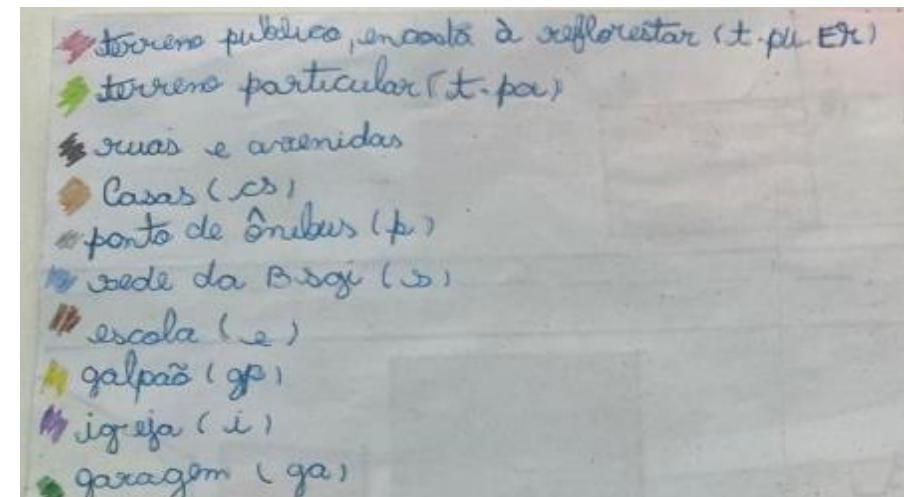 terreno público, encosta à reflorestar (t.pu.ER)
terreno particular (t.pa)
ruas e avenidas
Casas (cs)
ponto de ônibus (p)
sede da Bsgi (s)
escola (e)
galpão (gp)
igreja (i)
garagem (ga)